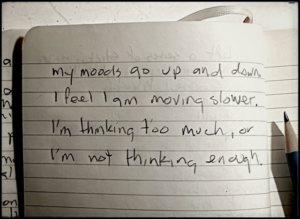 my moods go up and down.
I feel I am moving slower.
I'm thinking too much, or
I'm not thinking enough.